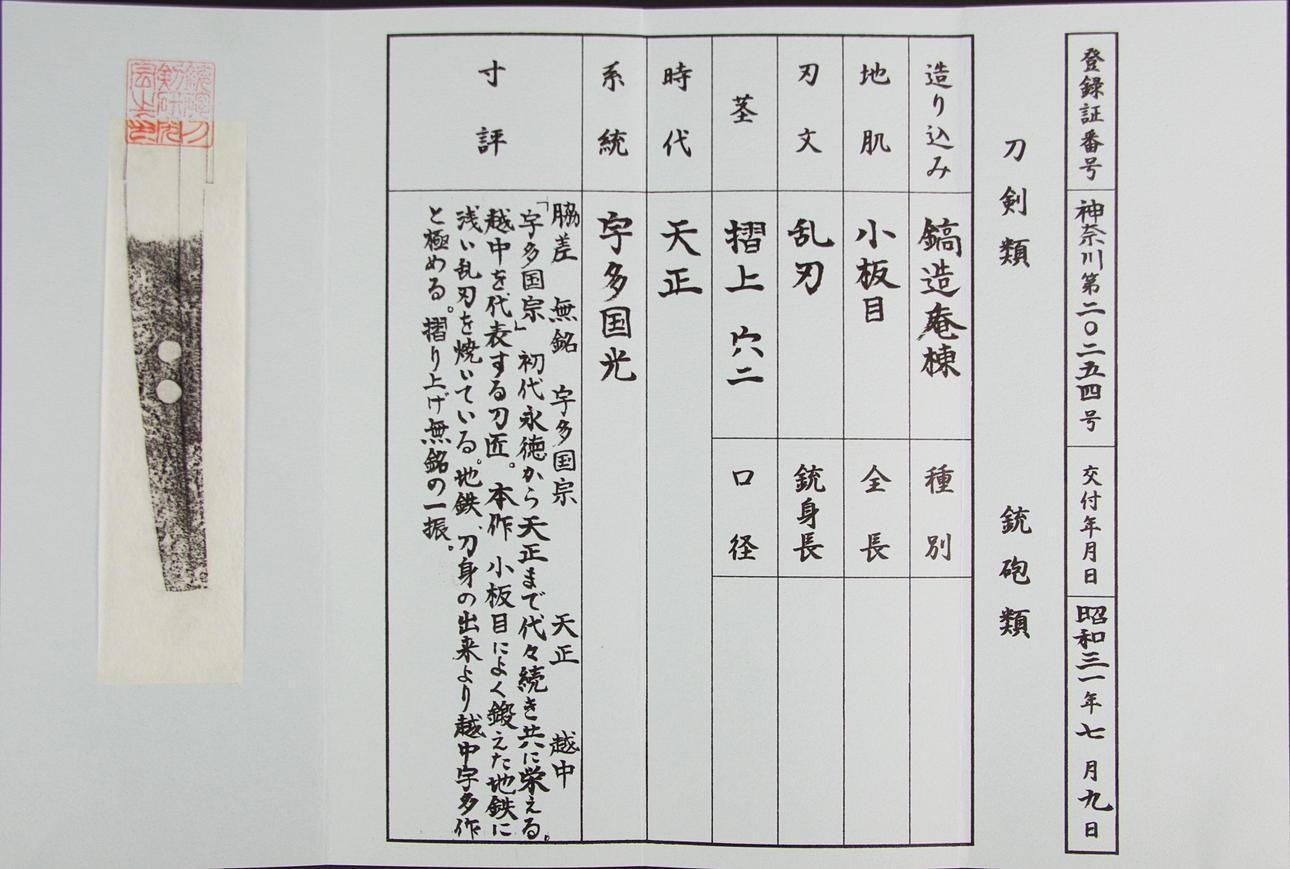 登録証番号 神奈川第二〇二五四号 交付年月日 昭和三一年七月九日
刀剣類 銃砲類
造り込み 鎬造庵棟 種別
地肌 小板目 全長
刃文 乱刃 銃身長
茎 摺上 穴二 口径
時代 天正
系統 宇多国光
寸評
脇差 無銘 宇多国宗 天正 越中
「宇多国宗」初代永徳から天正まで代々続き共に栄える。
越中を代表する刀匠。本作、小板目によく鍛えた地鉄に
浅い乱刃を焼いている。地鉄、刀身の出来より越中宇多作
と極める。摺り上げ無銘の一振。